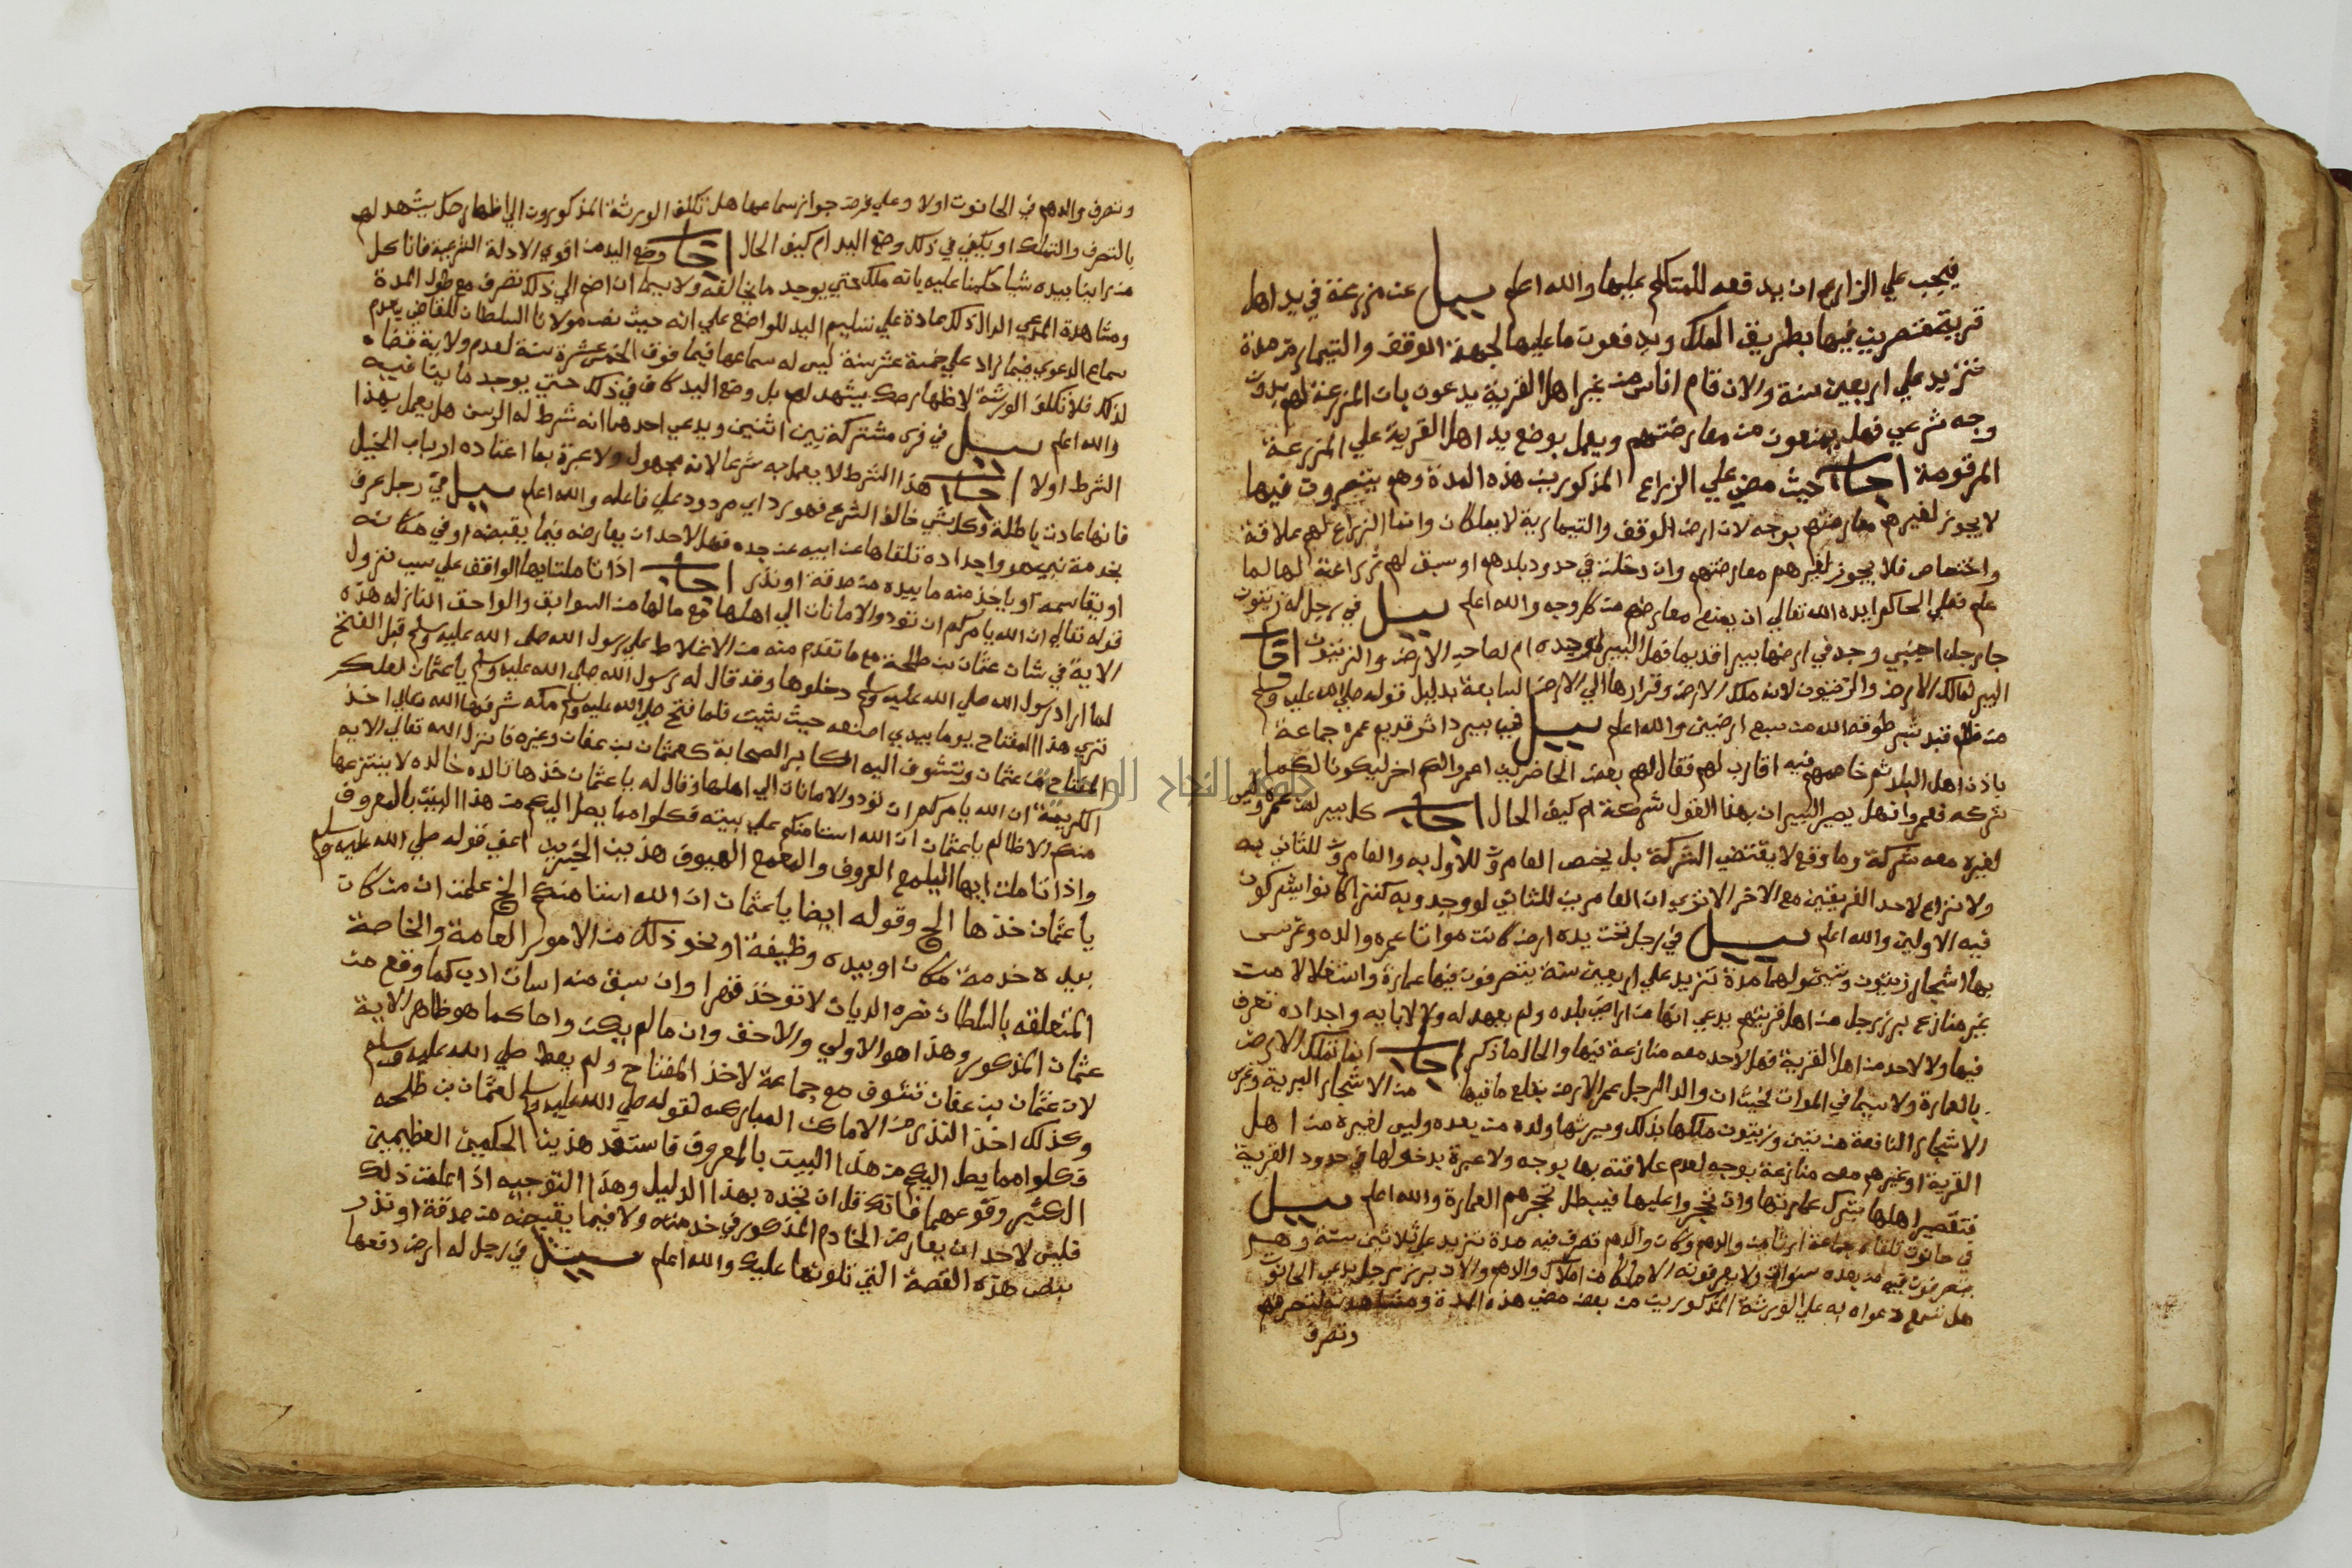 فيجب علي الزارع ان يدفعه للمتكلم عليها والله اعلم سيل عن مزرعة في يد اهل
قرية متصرفين فيها بطريق الملك ويدفعون ما عليها لجهة الوقف والتيمارية مدة
تزيد علي اربعين سنة والان قام اناس من غير اهل القرية يدعون بان المزرعة لهم بدون
وجه شرعي فهل يمنعون من معارضتهم ويعمل بوضع يد اهل القرية علي المزرعة
المرقومة اجاب حيث مضي علي الزراع المذكورين هذه المدة وهم يتصرون فيها
لا يجوز لغيرهم معارضتهم بوجه لان ارض الوقف والتيمارية لا يملكان وانما الزراع لهم علاقة
واختصاص فلا يجوز لغيرهم معارضتهم وان دخلت في حدود بلدهم او سبق لهم زراعة لها لما
علم فعلي الحاكم ايده الله تعالي ان يمنع معارضهم من كل وجه والله اعلم سيل في رجل له زيتون
جا رجل اجنبي وجد في ارضها بيرا قديما فهل البير لموجده ام لصاحب الارض والزيتون اجاب
البير لمالك الارض والزيتون لانه ملك الارض وقرارها الي الارض السابعة بدليل قوله صلي الله عليه وسلم
من ظلم قيد شبر طوقه الله من سبع ارضين والله اعلم سيل في بير داثر قديم عمره جماعة
باذن اهل البلد ثم خاصمهم فيه اقارب لهم فقال لهم بعض الحاضرين اعمروا لكم اخر ليكونا لكما
شركه فعمروا فهل يصير البيران بهذا القول شركة ام كيف الحال اجاب كل بير لمن عمره وليس
لغيره معه شركة وما وقع لا يقتضي الشركة بل يختص العامرون للاول به والعامرون للثاني به
ولا نزاع لاحد الفريقين مع الاخر الا تري ان العامرين للثاني لو وجدوا به كنزا كانوا يشركون
فيه الاولين والله اعلم سيل في رجل تحت يده ارض كانت مواتا عمره والده وغرس
بها اشجار زيتون وتين ولهما مدة تزيد علي اربعين سنة يتصرفون فيها عمارة واستغلالا من
غير منازع برز رجل من اهل قريتهم يدعي انها من اراضي بلده ولم يعهد له ولا لابايه واجداده تصرف
فيها ولا لاحد من اهل القرية فهل لاحد معه منازعة فيها والحال ما ذكر اجاب انما تملك الارض
بالعمارة ولا سيما في الموات فحيث ان والد الرجل عمر الارض بقلع ما فيها من الاشجار البرية وغرس
الاشجار النافعة من تين وزيتون ملكها بذلك ويرثها ولده من بعده وليس لغيره من اهل
القرية او غيرهم معه منازعة بوجه لعدم علاقته بها بوجه ولا عبرة بدخولها في حدود القرية
فتقصير اهلها بترك عمارتها وان تحجروا عليها فيبطل تحجرهم العمارة والله اعلم سيل
في حانوت تلقاه جماعة ارثا من والدهم وكان والدهم تصرف فيه مدة تزيد علي ثلاثين سنة وهم
يتصرفون فيه من بعده سنوات ولا يعرفونه الا ملكا من املاك والدهم والان برز رجل يدعي الحانوت
هل تسمع دعواه به علي الورثة المذكورين من بعض مضي هذه المدة
وتصرف
وتصرف والدهم في الحانوت اولا وعلي فرض جواز سماعها هل تكلف الورثة المذكورون الي اظهار صك يشهد لهم
بالتصرف والتملك او يكفي في ذلك وضع اليد ام كيف الحال اجاب وضع اليد من اقوي الادلة الشرعية فانا كل
من راينا بيده شيا حكمنا عليه بانه ملكه حتي يوجد ما يخالفه ولا سيما ان انضم الي ذلك تصرف مع طول المدة
ومشاهدة المدعي الدال ذلك عادة علي تسليم اليد للواضع علي انه حيث نص مولانا السلطان للقاضي بعدم
سماع الدعوي فيما زاد علي خمسة عشر سنة ليس له سماعها فيما فوق الخمس عشرة سنة لعدم ولاية قضاه
لذلك فلا تكلف الورثة لاظهار صك يشهد لهم بل وضع اليد كاف في ذلك حتي يوجد ما ينافيه
والله اعلم سيل في فرس مشتركة بين اثنين ويدعي احدهما انه شرط له الرسن هل يعمل بهذا
الشرط اولا اجاب هذا الشرط لا يعمل به شرعا لانه مجهول ولا عبرة بما اعتاده ارباب الخيل
فانها عادت باطلة وكل شي خالف الشرع فهو رد اي مردود علي فاعله والله اعلم سيل في رجل عرف
بخدمة نبي هو واجداده تلقاها عن ابيه عن جده فهل لاحد ان يعارضه فيما يقبضه او في مكانه
او يقاسمه او ياخذ منه ما بيده من صدقة او نذر اجاب اذا تاملت ايها الواقف علي سبب نزول
قوله تعالي ان الله يامركم ان تودوا الامانات الي اهلها مع مالها من السوابق والواحق النازله هذه
الاية في شان عثمان بن طلحة مع ما تقدم منه من الاغلاط علي رسول الله صلي الله عليه وسلم قبل الفتح
لما اراد رسول الله صلي الله عليه وسلم دخلوها وقد قال له رسول الله صلي الله عليه وسلم يا عثمان لعلك
تري هذا المفتاح يوما بيدي اصنعه حيث شيت فلما فتح صلي الله عليه وسلم مكه شرفها الله تعالي اخذ
المفتاح من عثمان وتشوف اليه اكابر الصحابة كعثمان بن عفان وغيره فانزل الله تعالي الايه
الكريمة ان الله يامركم ان تودوا الامانات الي اهلها وقال له يا عثمان خذها تالده خالده لا ينتزعها
منكم الا ظالم يا عثمان ان الله استامنكم علي بيته فكلوا مما يصل اليكم من هذا البيت بالمعروف
واذا تاملت ايها اليلمع العروف والمعمع الهيوف هذين الخبرين اعني قوله صلي الله عليه وسلم
يا عثمان خذها الخ وقوله ايضا يا عثمان ان الله استامنكم الخ علمت ان من كانت
بيده خدمة مكان او بيده وظيفة او نحو ذلك من الامور العامة والخاصة
المتعلقه بالسلطان نصره الديان لا توخذ قهرا وان سبق منه اسات ادب كما وقع من
عثمان المذكور وهذا هو الاولي والاحق وان ما لم يكن واحا كما هو ظاهر الاية
لان عثمان بن عفان تشوف مع جماعة لاخذ المفتاح ولم يعط صلي الله عليه وسلم
وكذلك اخذ النذر من الاماكن المباركه لقوله صلي الله عليه وسلم لعثمان بن طلحه
فكلوا مما يصل اليكم من هذا البيت بالمعروف فاستفد هذين الحكمين العظيمين
الكثير وقوعهما فانك قل ان تجده بهذا الدليل وهذا التوجيه اذا علمت ذلك
فليس لاحد ان يعارض الخادم المذكور في خدمته ولا فيما يقبضه من صدقة او نذر
بنص هذه القصة التي تلوتها عليك والله اعلم سيل في رجل له ارض دفعها